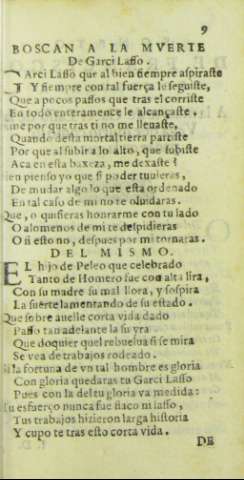 9
BOSCAN A LA MVERTE
De Garci Lasso.
Arci Lasso que al bien siempre aspiraste
Y siempre con tal fuerça le seguiste,
Que a pocos passos que tras el corriste
En todo enteramente le alcançaste.
me por que tras ti no me llenaste,
Quando desta mortal tierra partiste
Por que al subir a lo alto, que subiste
Aca en esta baxeza, me dexaste?
en pienso yo que si poder tuuieras,
De mudar algo lo que esta ordenado
En tal caso de mi no te oluidaras.
Que, o quisieras honrarme con tu lado
O alomenos de mi te despidieras
O si esto no, despues por mi tornaras.
DEL MISMO.
EL hijo de Peleo que celebrado
Tanto de Homero fue con alta lira,
Con su madre su mal llora, y sospira
La suerte lamentando de su estado.
Que sobre auelle corta vida dado
Passo tan adelante la su yra
Que do quier quel rebuelua si se mira
Se vea de trabajos rodeado.
Si la fortuna de vn tal hombre es gloria
Con gloria quedaras tu Garci Lasso
Pues con la del tu gloria va medida:
Tu esfuerço nunca fue flaco ni lasso,
Tus trabajos hizieron larga historia
Y cupo te tras esto corta vida.
DE